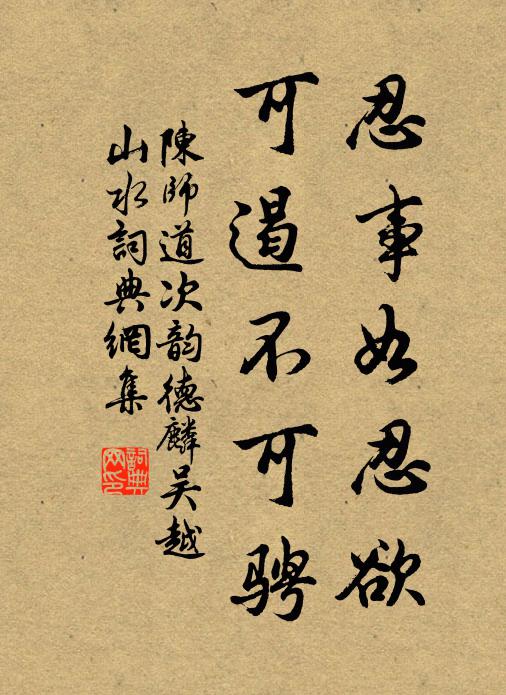 忍事如忍欲
可遏不可骋
陳師道次韵德麟吴越
山水詞典網集
詞典網印